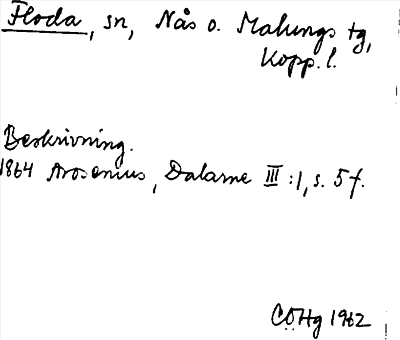 Floda, sn, Nås o. Malungs tg,
Kopp. l.
Beskrivning.
1864 Arosenius, Dalarne III:1, s. 5 f.
COHg 1962